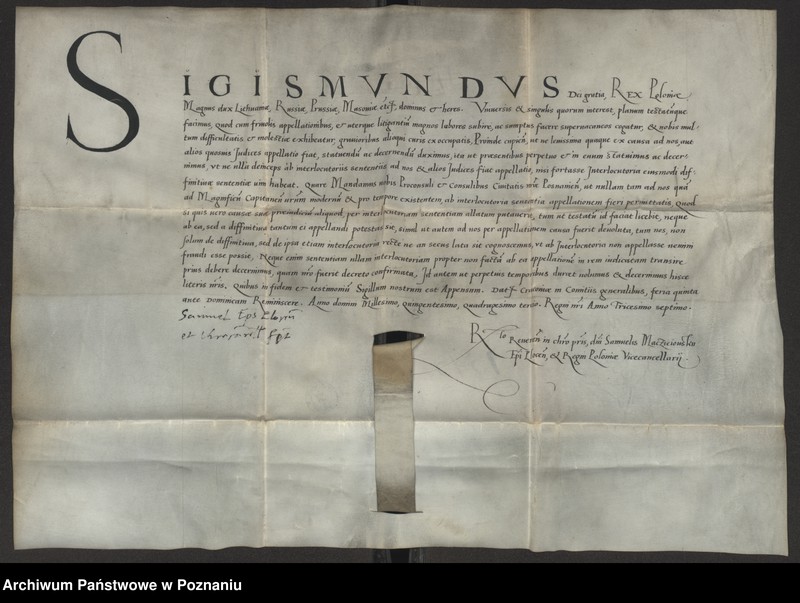 SIGISMVNDVS Dei gratia, REX Poloniæ
Magnus dux Lithuaniæ, Russiæ, Prussiæ, Masoviæ etcſ. dominus et heres. Vniversis & singulis quorum interest, planum testatúmque
facimus, quod cum frivolis appellationibus, et uterque litigantiũ magnos labores subire, ac sumptus facere supervacaneos cogatur, & nobis mul-
tum difficultatis et molestiæ exhibeatur, gravioribus alioqui curis occupatis, Proinde cupiẽtes, ut ne levissima quaque ex causa ad nos, aut
alios quosvis Judices appellatio fiat, statuendũ ac decernendũ duximus, ita ut præsentibus perpetuo et in ævum statuimus ac decer-
nimus, ut ne ulla deinceps ab interlocutoriis sententiis ad nos & alios Judices fiat appellatio, nisi fortasse Interlocutoria eiusmodi dif-
finitivæ sententiæ vim habeat. Quare Mandamus vobis Proconsuli et Consulibus Civitatis nrẽ Posnanien̄, ut nullam tam ad nos quã
ad Magnificũ Capitaneũ vrũm modernũ & pro tempore existentem, ab interlocutoria sententia appellationem fieri permittatis, Quod
si quis vero causæ suæ præiudicium aliquod, per interlocutoriam sententiam allatum putaverit, tum ut testatũ id faciat licebit, neque
ab ea, sed a diffinitiva tantum ei appellandi potestas sit, simul ut autem ad nos per appellationem causa fuerit devoluta, tum nos, non
solum de diffinitiva, sed de ipsa etiam interlocutoria recte ne an secus lata sit cognoscemus, ut ab Interlocutoria non appellasse nemini
fraudi esse possit, Neque enim sententiam ullam interlocutoriam propter non factã ab ea appellationẽ in rem iudicatam transire
prius debere decernimus, quam nrõ fuerit decreto confirmata, Id autem ut perpetuis temporibus duret volumus & decernimus hisce
literis nrĩs, Quibus in fidem et testimoniũ Sigillum nostrum est Appensum. Datꝫ Cracoviæ in Comitiis generalibus, feria quinta
ante Dominicam Reminiscere. Anno domini Millesimo, quingentesimo, quadragesimo tertio. Regni nrĩ Anno Tricesimo septimo.
Samuel Eps Plocẽn
Rlo Reverẽn in chrõ prĩs, dñi Samuelis Maczieiouski
Epi Plocẽn, & Regni Poloniæ Vicecancellarij.
Archiwum Państwowe w Poznaniu